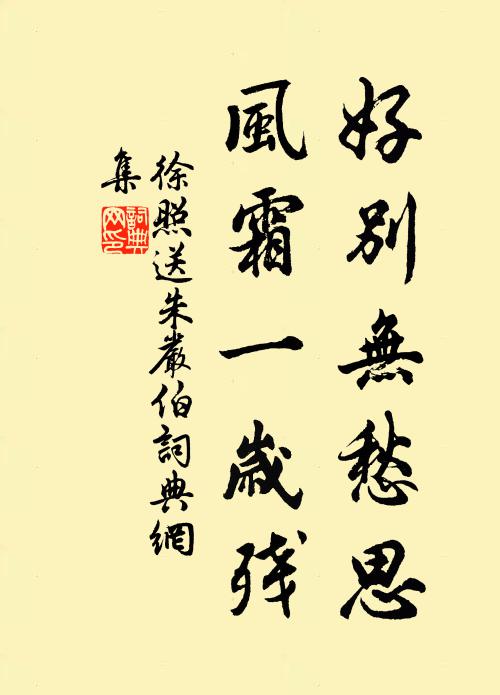 好別無愁思
風霜一歲残
徐照送朱嚴伯詞典網
集
詞典
网印